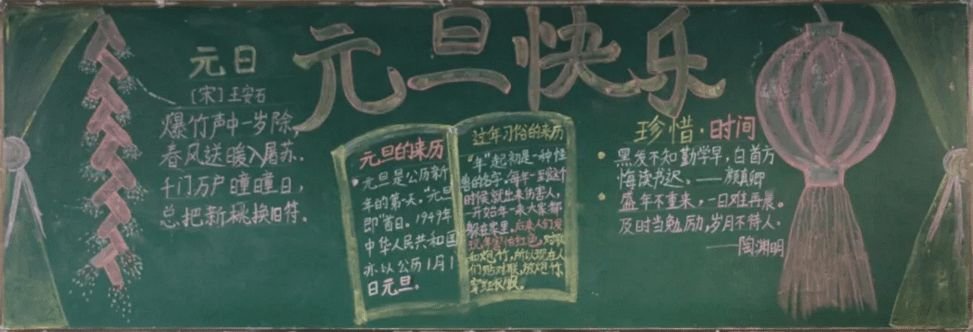 元旦快乐
元日
[宋]王安石
爆竹声中一岁除,
春风送暖入屠苏.
千门万户曈曈日,
总把新桃换旧符.
元旦的来历
元旦是公历新
年的第一天."元旦
即"首日. 1949年
中华人民共和国
亦以公历1月1
日元旦.
过年习俗的来历
"年"起初是一种怪
兽的名字,每年一到这个
时候就出来伤害人,
一开始年一来大家都
躲在家里,后来人们发
现年害怕红色,
和炮竹,所以现在人
们贴对联,放炮竹
穿红衣服.
珍惜·时间
黑发不知勤学早,白首方
悔读书迟.——颜真卿
盛年不重来,一日难再晨.
及时当勉励,岁月不待人.
——陶渊明